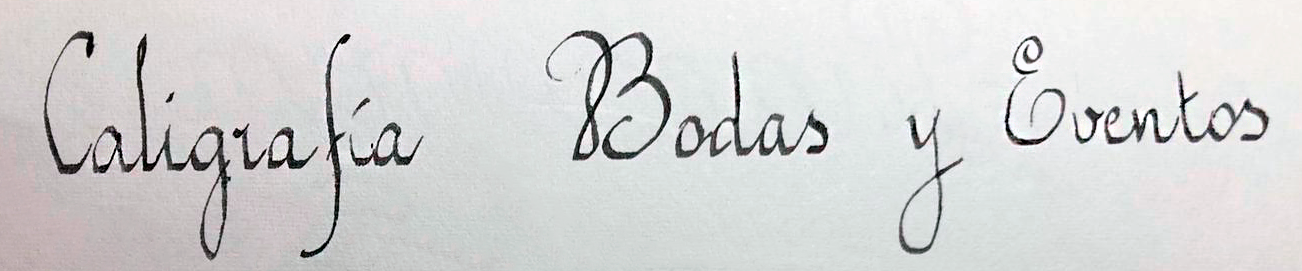 Caligrafía Bodas y Eventos